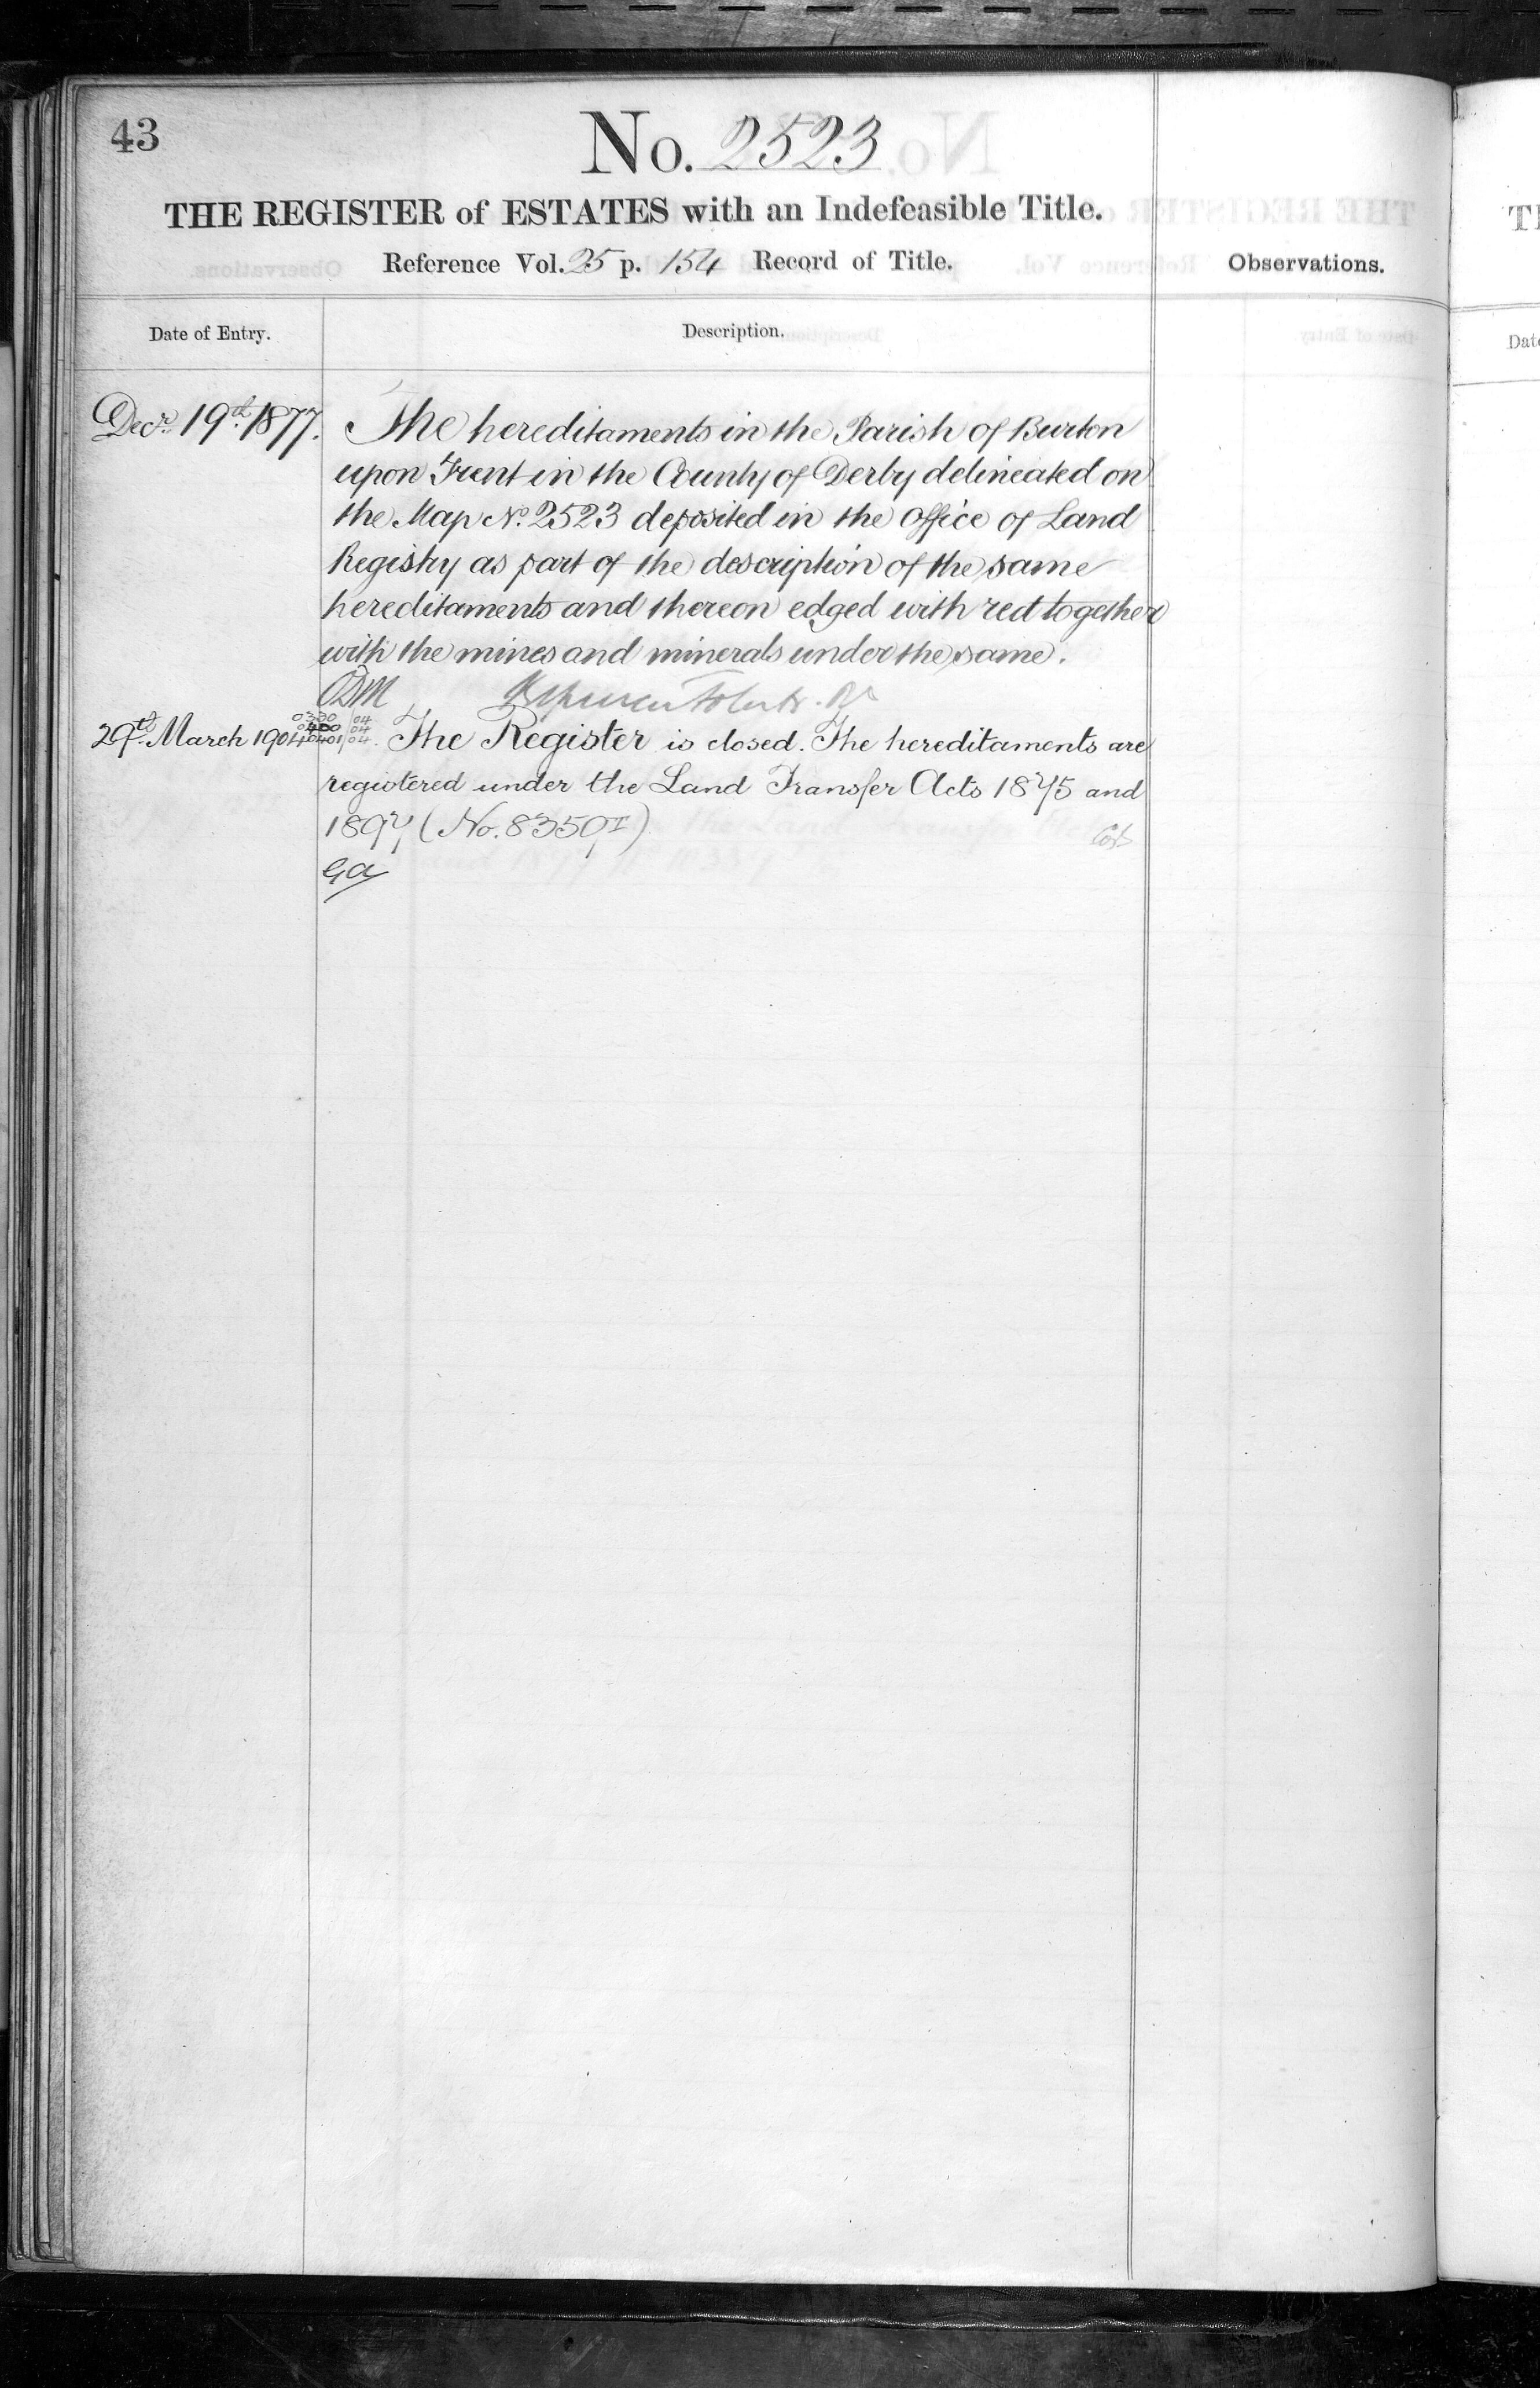 43
No. 2523
THE REGISTER of ESTATES with an Indefeasible Title.
Reference Vol. 25 p. 154 Record of Title.
Observations.
Date of Entry.
Description.
Decr. 19th. 1877.
The hereditaments in the Parish of Burton
upon Trent in the County of Derby delineated on
the Map No. 2523 deposited in the Office of Land
Registry as part of the description of the same
hereditaments and thereon edged with red together
with the mines and minerals under the same.
29th. March 1904
0300/04
0400/04
0401/04
The Register is closed. The hereditaments are
registered under the Land Transfer Acts 1875 and
1897 (No. 83509I)